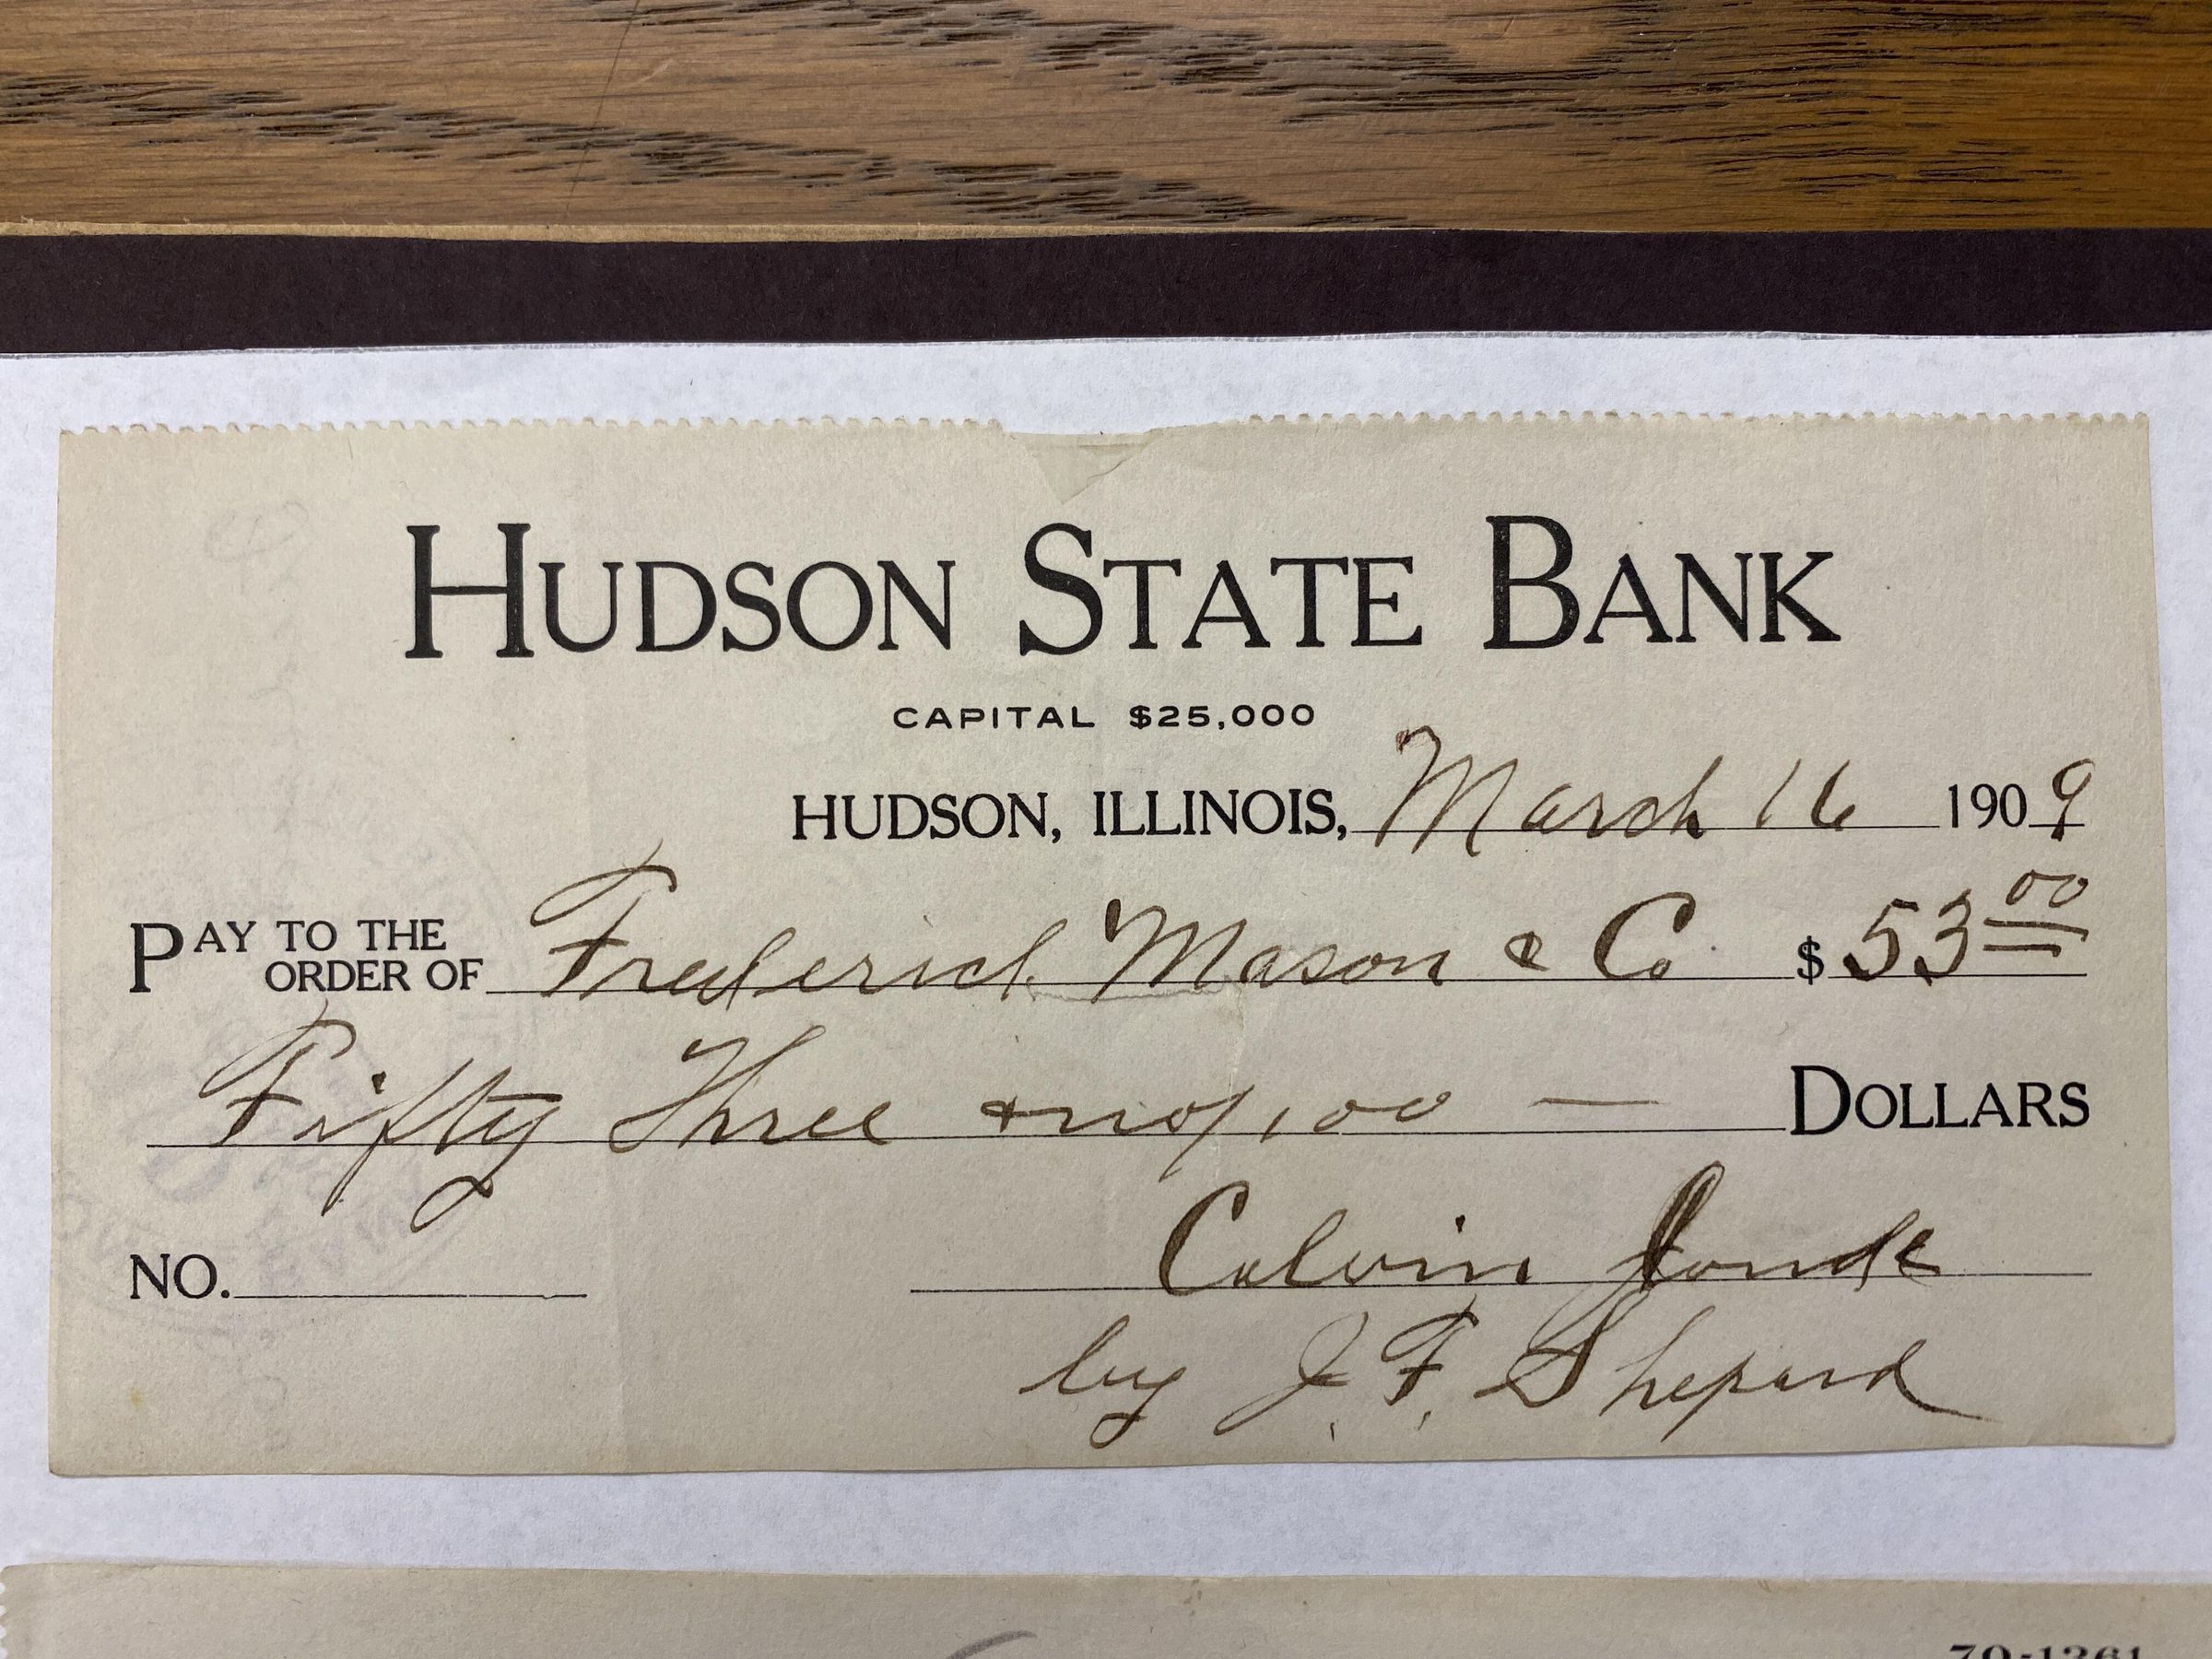 HUDSON STATE BANK
CAPITAL $25,000
HUDSON, ILLINOIS, March 16 1909
PAY TO THE
ORDER OF Frederick Mason & Co. $53 00
Fifty Three & no/100 — DOLLARS
NO. Calvin
by J. F. Shepard
70-1361